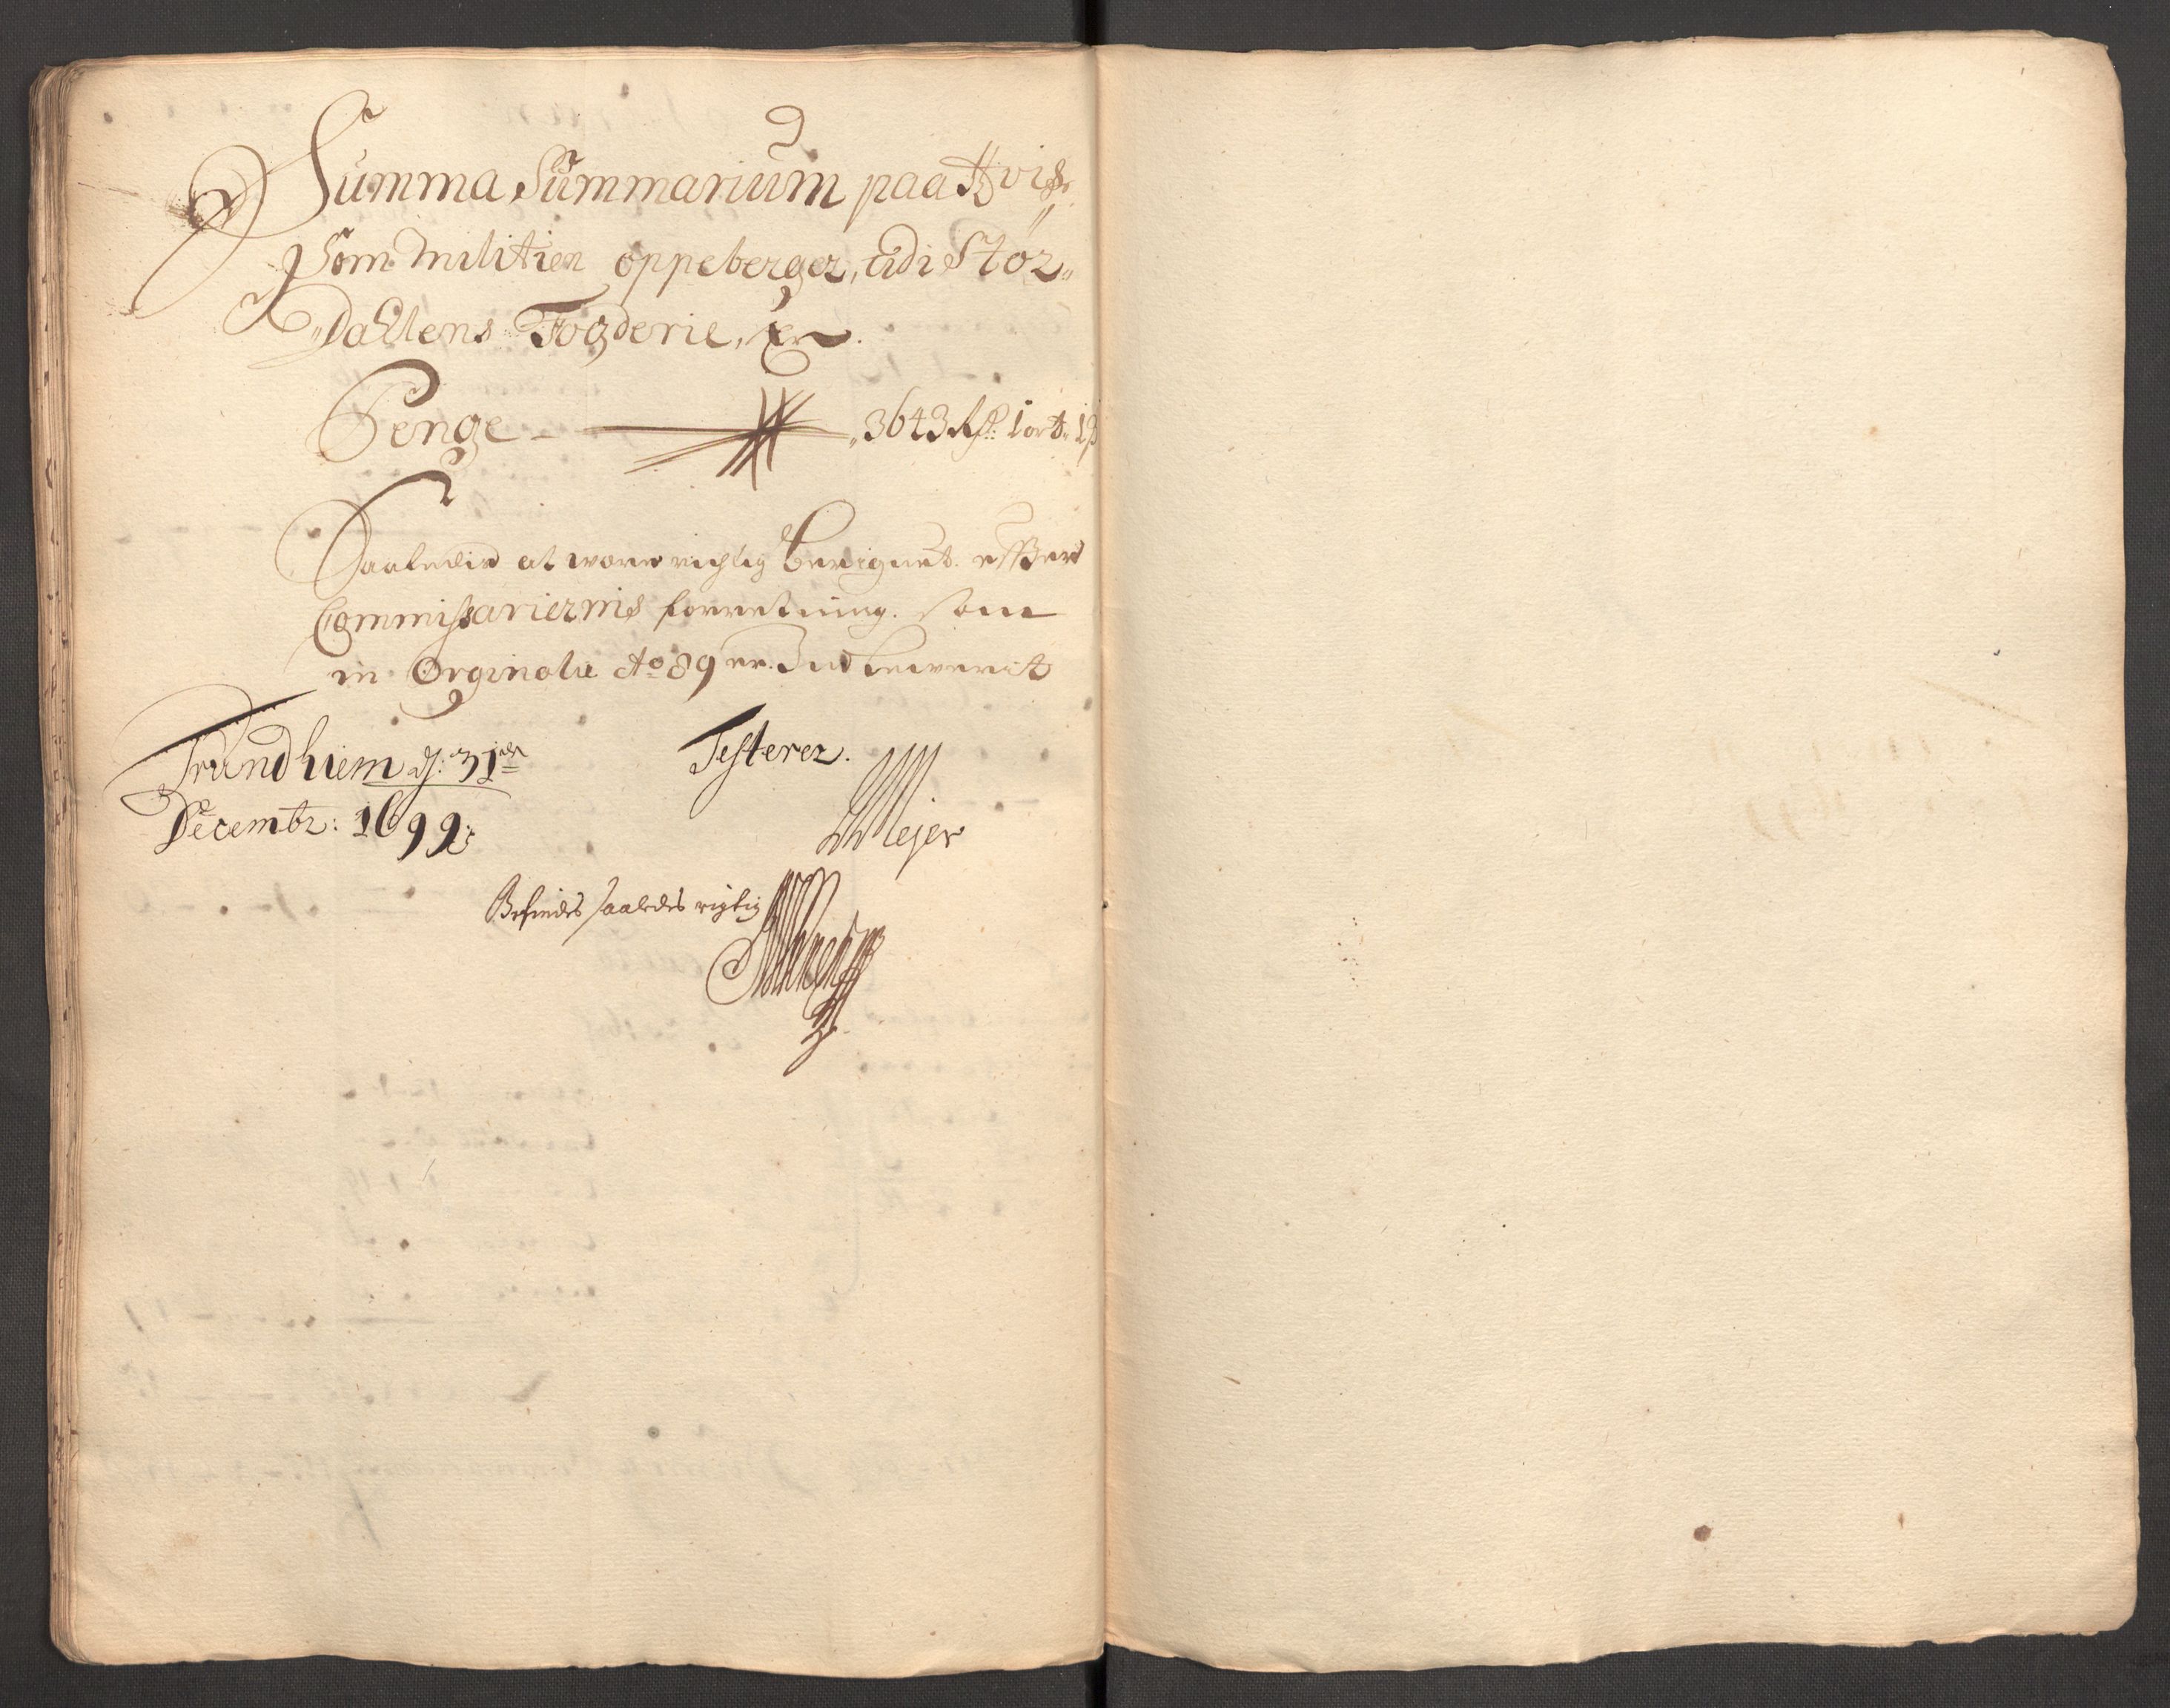 Summa Summarium paa Hvis
som Militien oppeberger, udi Stør-
Dallens Fogderie, Er
Penge 3643 Rd: 1 ort. 1
Saaledis at were richtig beregnet effter
Commissariernis forretning. som
in Orginalie Ao 89 er Indleverit
Trundhiem dj: 31
Decembr: 1699:
Testerer.
Mejer
Befindes saaledes rigtig